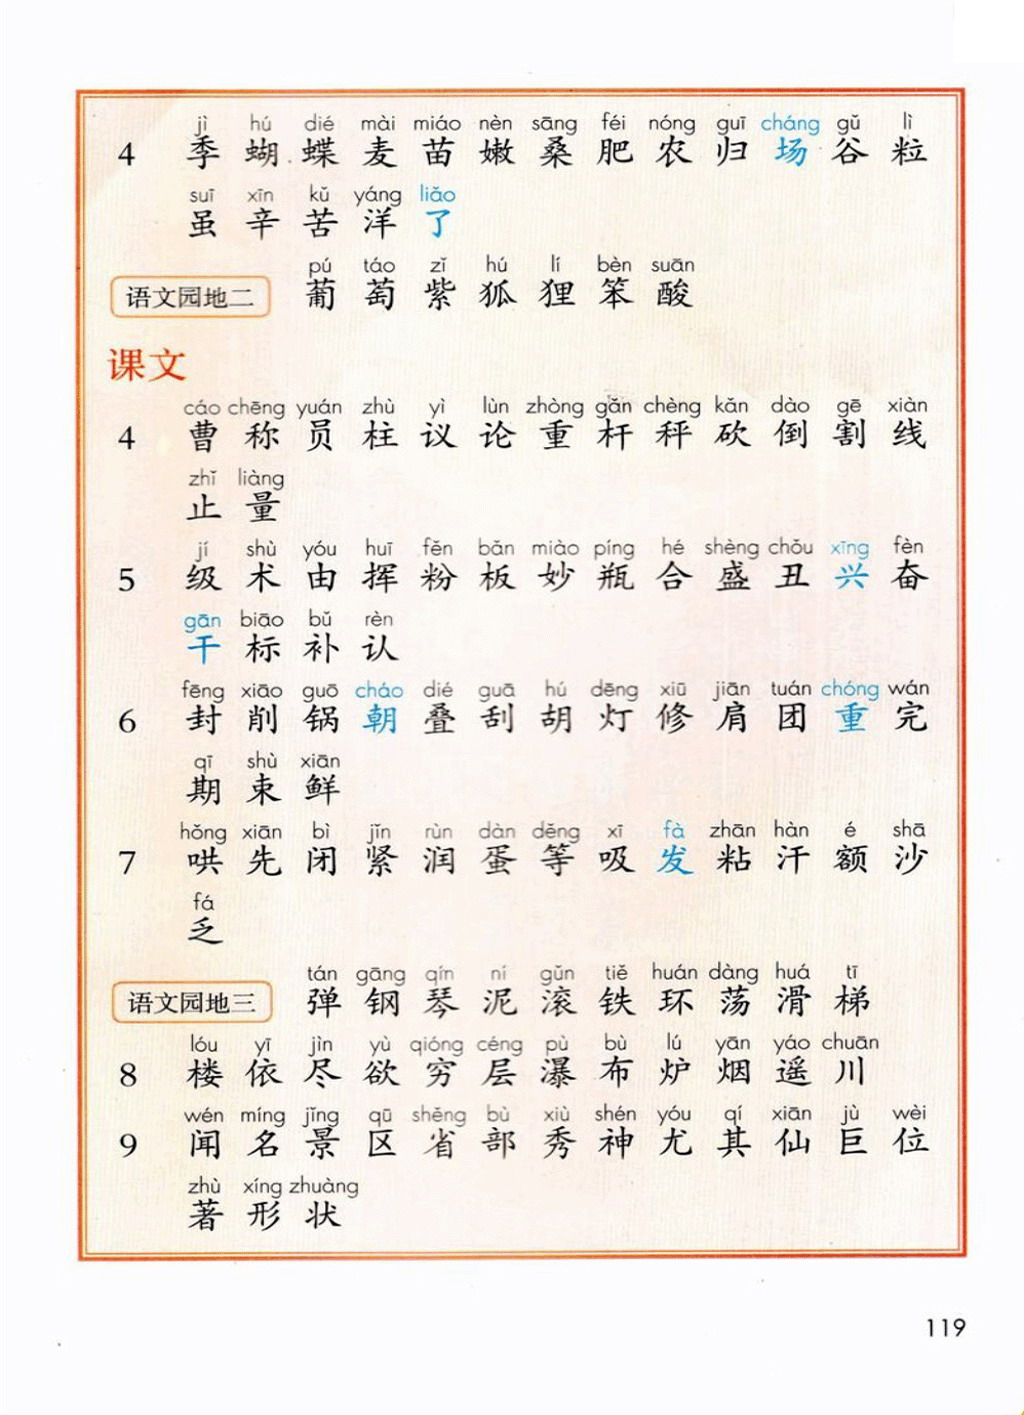 jì hú dié mài miáo nèn sāng féi nóng guī cháng gǔ lì
4 季 蝴 蝶 麦 苗 嫩 桑 肥 农 归 场 谷 粒
suī xīn kǔ yáng liǎo
虽 辛 苦 洋 了
pú táo zǐ hú lí bèn suān
语文园地二 葡 萄 紫 狐 狸 笨 酸
课文
cáo chēng yuán zhù yì lùn zhòng gǎn chèng kǎn dào gē xiàn
4 曹 称 员 柱 议 论 重 杆 秤 砍 倒 割 线
zhǐ liàng
止 量
jí shù yóu huī fěn bǎn miào píng hé shèng chǒu xīng fèn
5 级 术 由 挥 粉 板 妙 瓶 合 盛 丑 兴 奋
gān biāo bǔ rèn
干 标 补 认
fēng xiāo guō cháo dié guā hú dēng xiū jiān tuán chóng wán
6 封 削 锅 朝 叠 刮 胡 灯 修 肩 团 重 完
qī shù xiān
期 束 鲜
hǒng xiān bì jǐn rùn dàn děng xī fà zhān hàn é shā
7 哄 先 闭 紧 润 蛋 等 吸 发 粘 汗 额 沙
fá
乏
tán gāng qín ní gǔn tiě huán dàng huá tī
语文园地三 弹 钢 琴 泥 滚 铁 环 荡 滑 梯
lóu yī jìn yù qióng céng pù bù lú yān yáo chuān
8 楼 依 尽 欲 穷 层 瀑 布 炉 烟 遥 川
wén míng jǐng qū shěng bù xiù shén yóu qí xiān jù wèi
9 闻 名 景 区 省 部 秀 神 尤 其 仙 巨 位
zhù xíng zhuàng
著 形 状
119